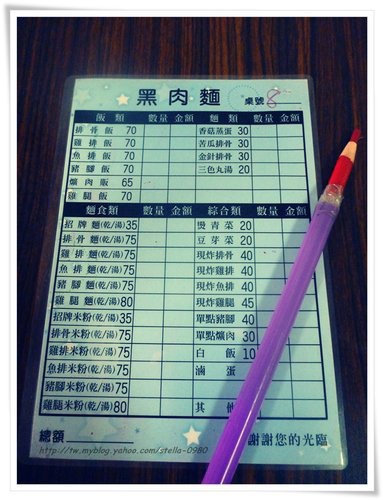 黑肉麵 桌號 8
飯類 數量 金額 麵類 數量 金額
排骨飯 70 香菇蒸蛋 30
雞排飯 70 苦瓜排骨 30
魚排飯 70 金針排骨 30
豬腳飯 70 三色丸湯 20
爌肉飯 65
雞腿飯 70
麵食類 數量 金額 綜合類 數量 金額
招牌麵(乾/湯) 35 燙青菜 20
排骨麵(乾/湯) 75 豆芽菜 20
雞排麵(乾/湯) 75 現炸排骨 40
魚排麵(乾/湯) 75 現炸雞排 40
豬腳麵(乾/湯) 75 現炸魚排 40
雞腿麵(乾/湯) 80 現炸雞腿 45
招牌米粉(乾/湯) 35 單點豬腳 40
排骨米粉(乾/湯) 75 單點爌肉 30
雞排米粉(乾/湯) 75 白飯 10
魚排米粉(乾/湯) 75 滷蛋
豬腳米粉(乾/湯) 75
雞腿米粉(乾/湯) 80 其他
總額 謝謝您的光臨
http://tw.myblog.yahoo.com/stella-0980